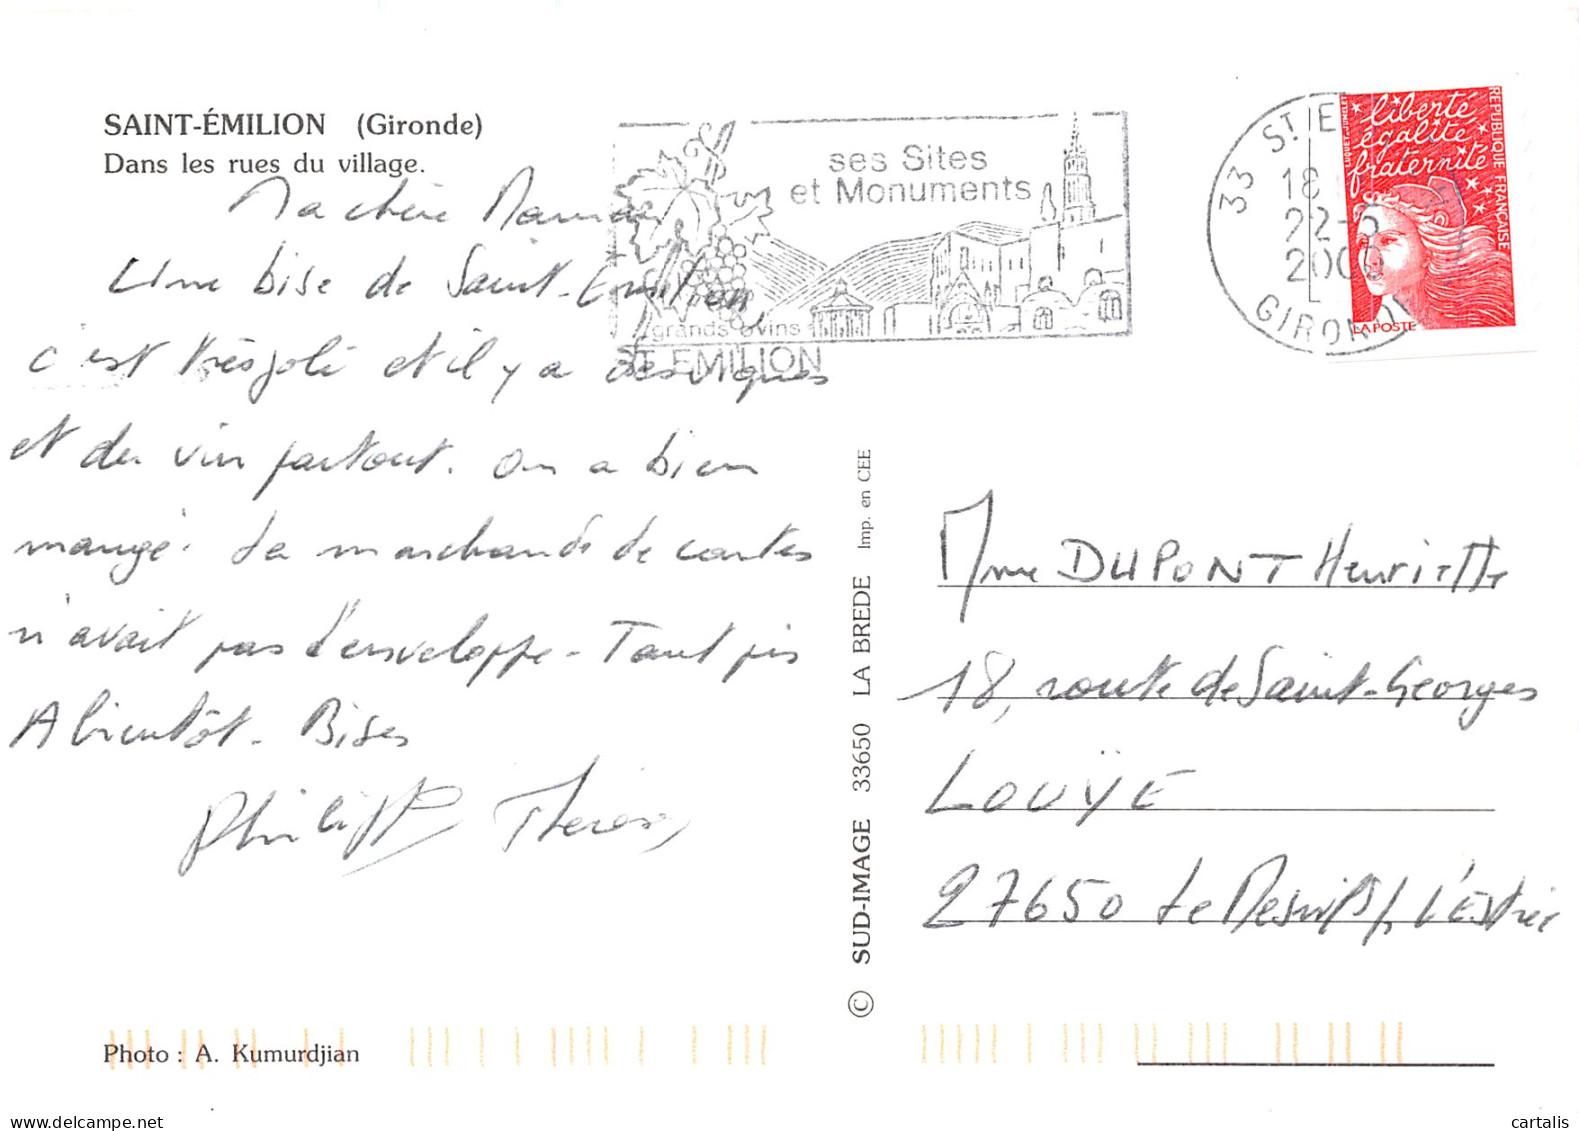 SAINT-ÉMILION (Gironde)
Dans les rues du village.
Ma chère Maman
Une bise de Saint-Emilion,
c'est très joli et il y a des vignes
et du vin partout. On a bien
mangé. La marchande de cartes
n'avait pas d'enveloppe - Tant pis
A bientôt - Bises
Philippe Thérèse
ses Sites
et Monuments
grands vins
ST EMILION
33 ST E
18
22-5
2000
GIRONDE
liberté
égalité
fraternité
REPUBLIQUE FRANÇAISE
LA POSTE
Mme DUPONT Henriette
18, route de Saint-Georges
LOUYE
27650 Le Mesnil s/ L'Estrée
© SUD-IMAGE 33650 LA BREDE Imp. en CEE
Photo : A. Kumurdjian
www.delcampe.net
cartalis